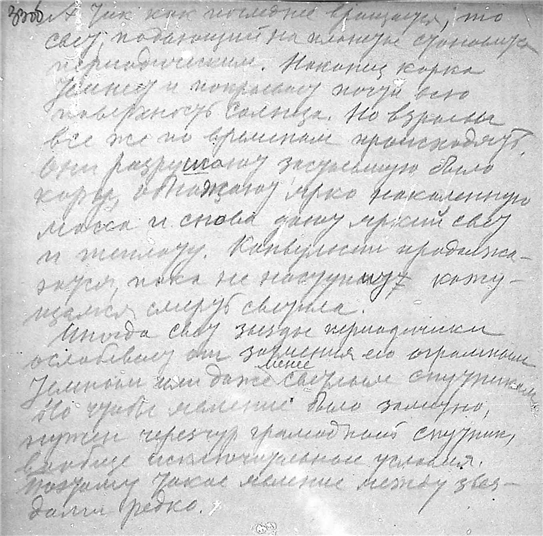 А так как последнее вращается, то
свет падающий на планеты становится
периодическим. Наконец корка
темнеет и покрывает почти всю
поверхность солнца. Но взрывы
все же по временам происходят.
Они разрушают застывшую было
кору, обнажают ярко накаленную
массу и снова дают яркий свет
и теплоту. Конвульсии продолжа-
ются, пока не наступит кажу-
щаяся смерть светила.
Иногда свет звезды периодически
ослабевает от затмения его огромным
темным или даже менее светлым спутником.
Но чтобы явление было заметно,
нужен чересчур громадный спутник,
вообще исключительные условия.
Поэтому такое явление между звез-
дами редко.